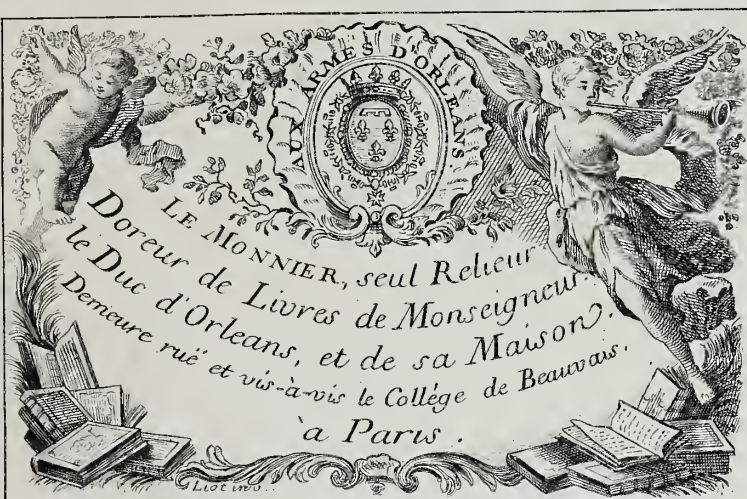 AUX ARMES D'ORLEANS
LE MONNIER, seul Relieur
Doreur de Livres de Monseigneur
le Duc d'Orleans, et de sa Maison.
Demeure ruë et vis-à-vis le Collége de Beauvais,
à Paris.
Liot inv.